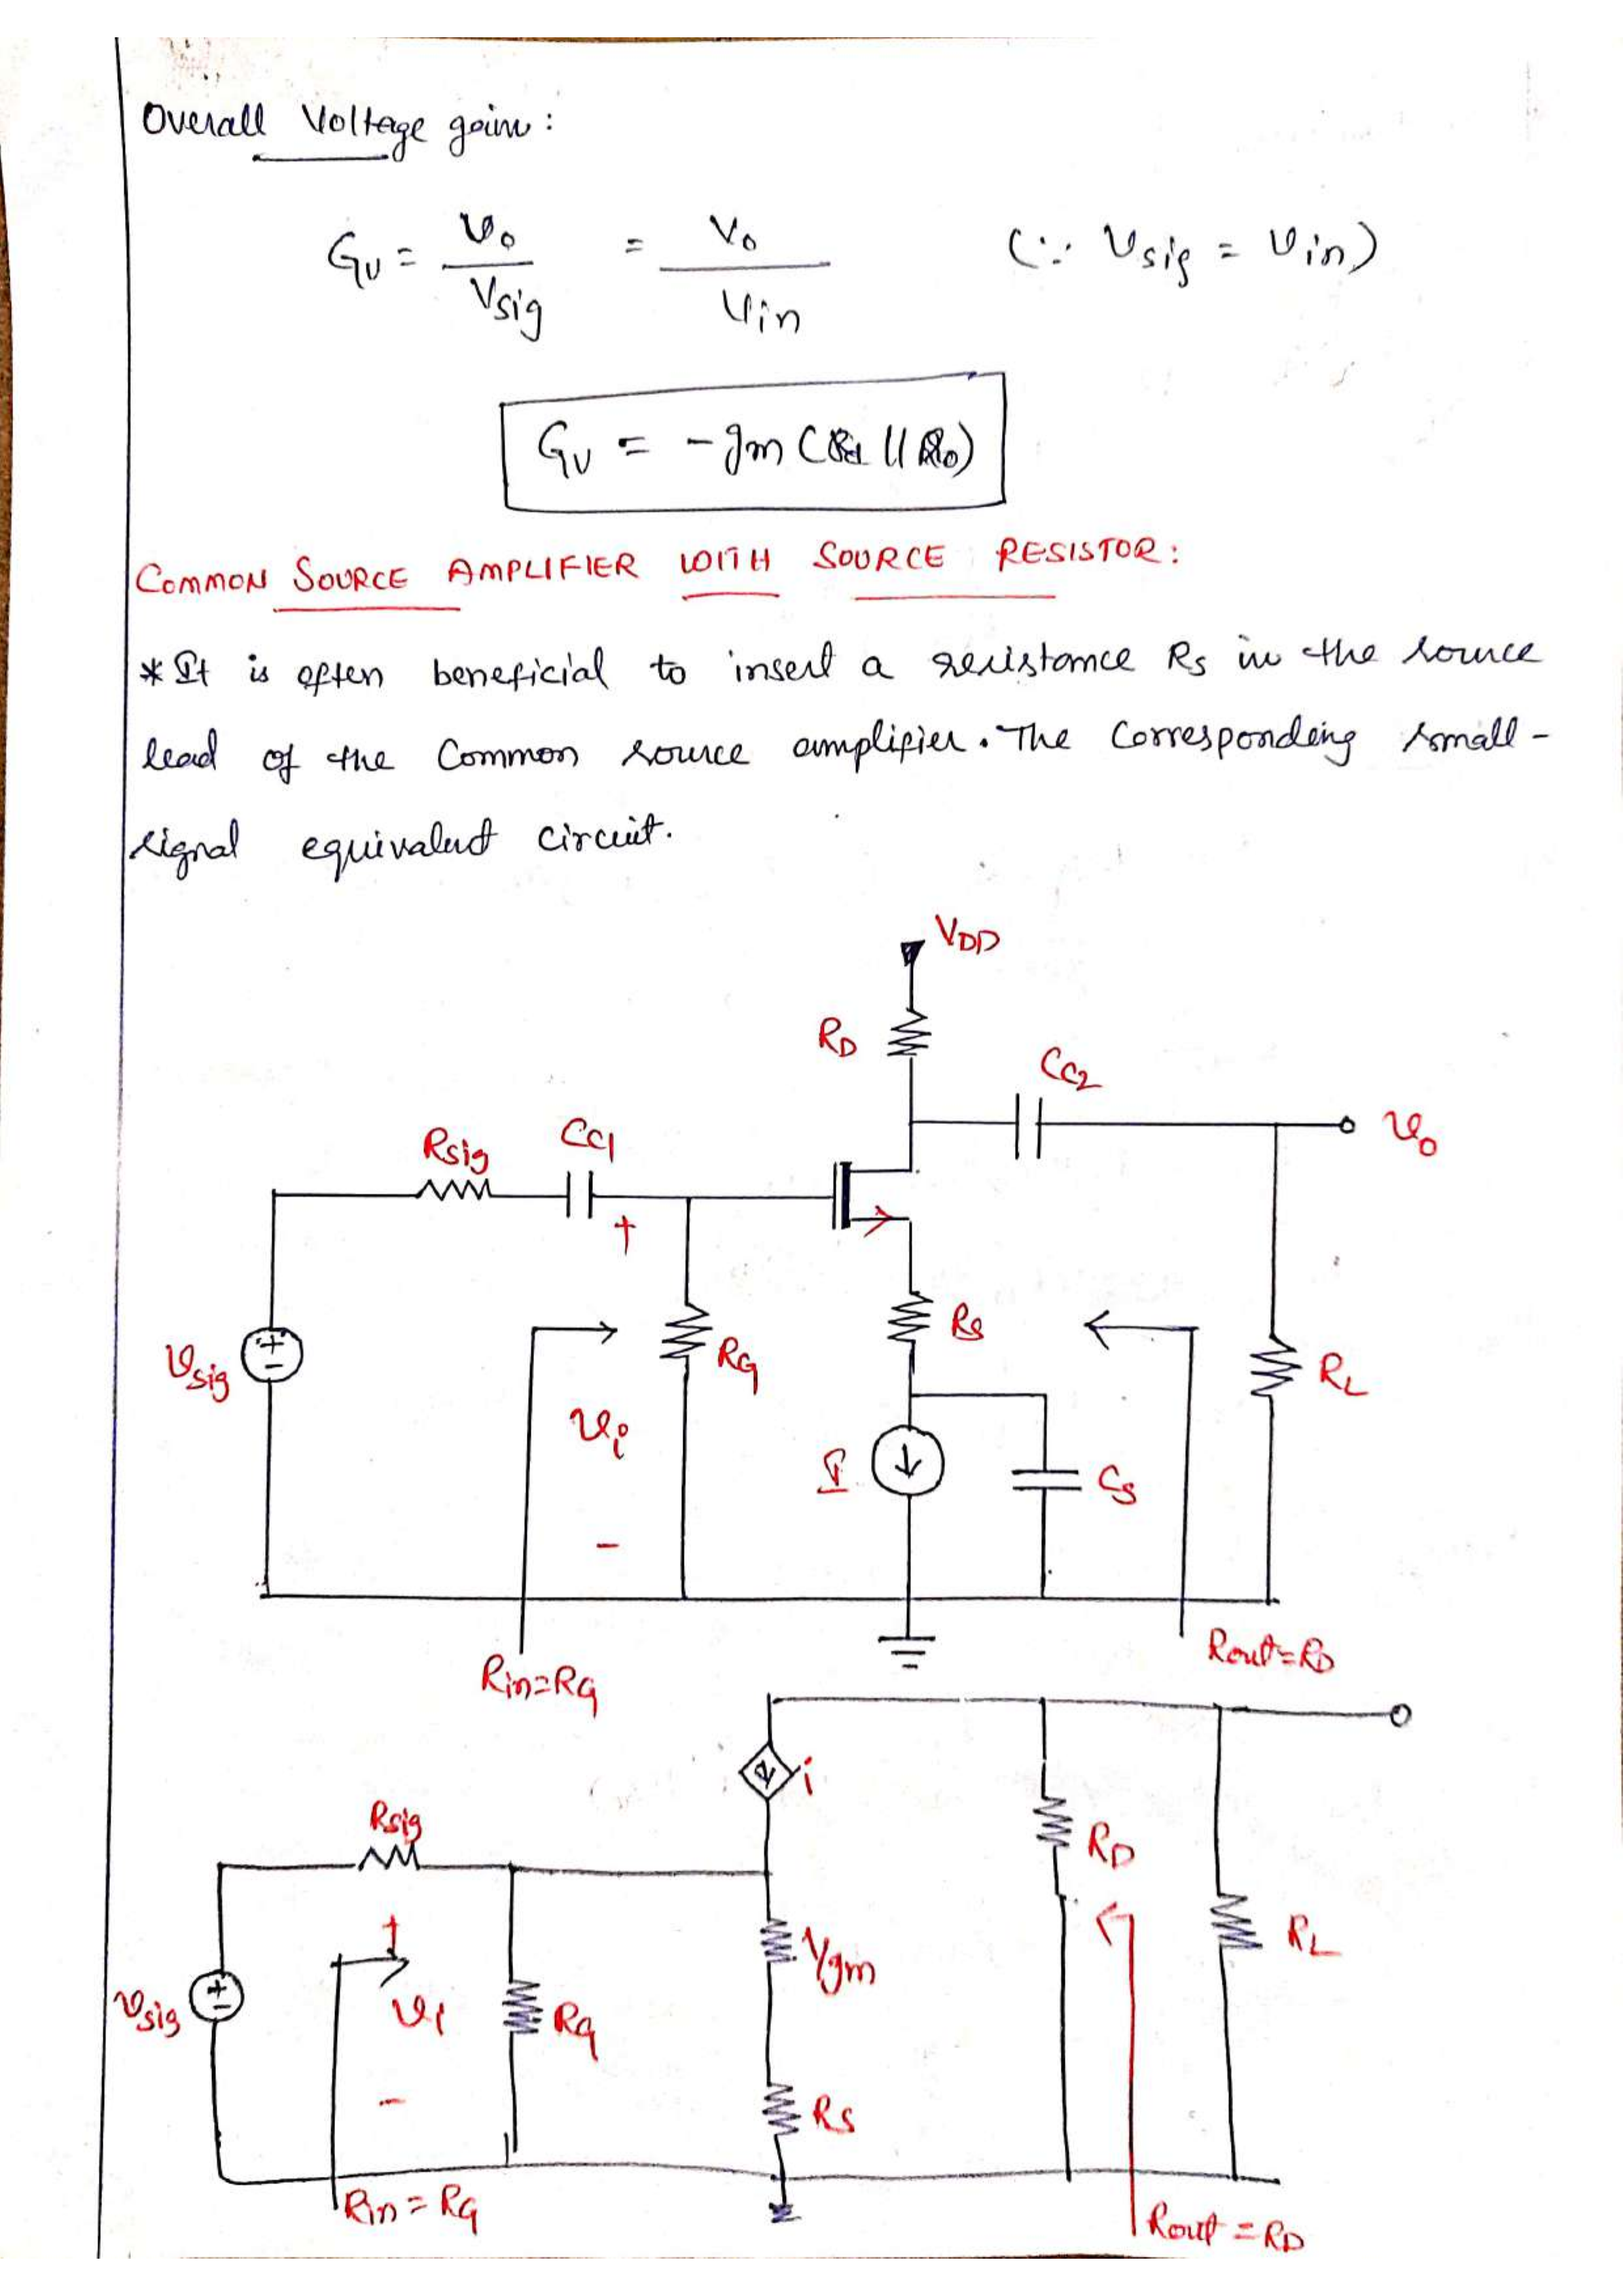 Overall Voltage gain:
Gv = vo / Vsig = Vo / Vin (∵ Vsig = Vin)
Gv = -gm (Rd || Ro)
COMMON SOURCE AMPLIFIER WITH SOURCE RESISTOR:
* It is often beneficial to insert a resistance Rs in the source
lead of the Common source amplifier. The Corresponding small-
signal equivalent circuit.
VDD
RD
CC2
vo
Rsig
CC1
+
Vsig
+
-
vi
-
RG
Rs
I
Cs
RL
Rin=RG
Rout=RD
i
Rsig
RD
RL
1/gm
vsig
+
-
+
vi
-
RG
Rs
Rin = RG
Rout = RD